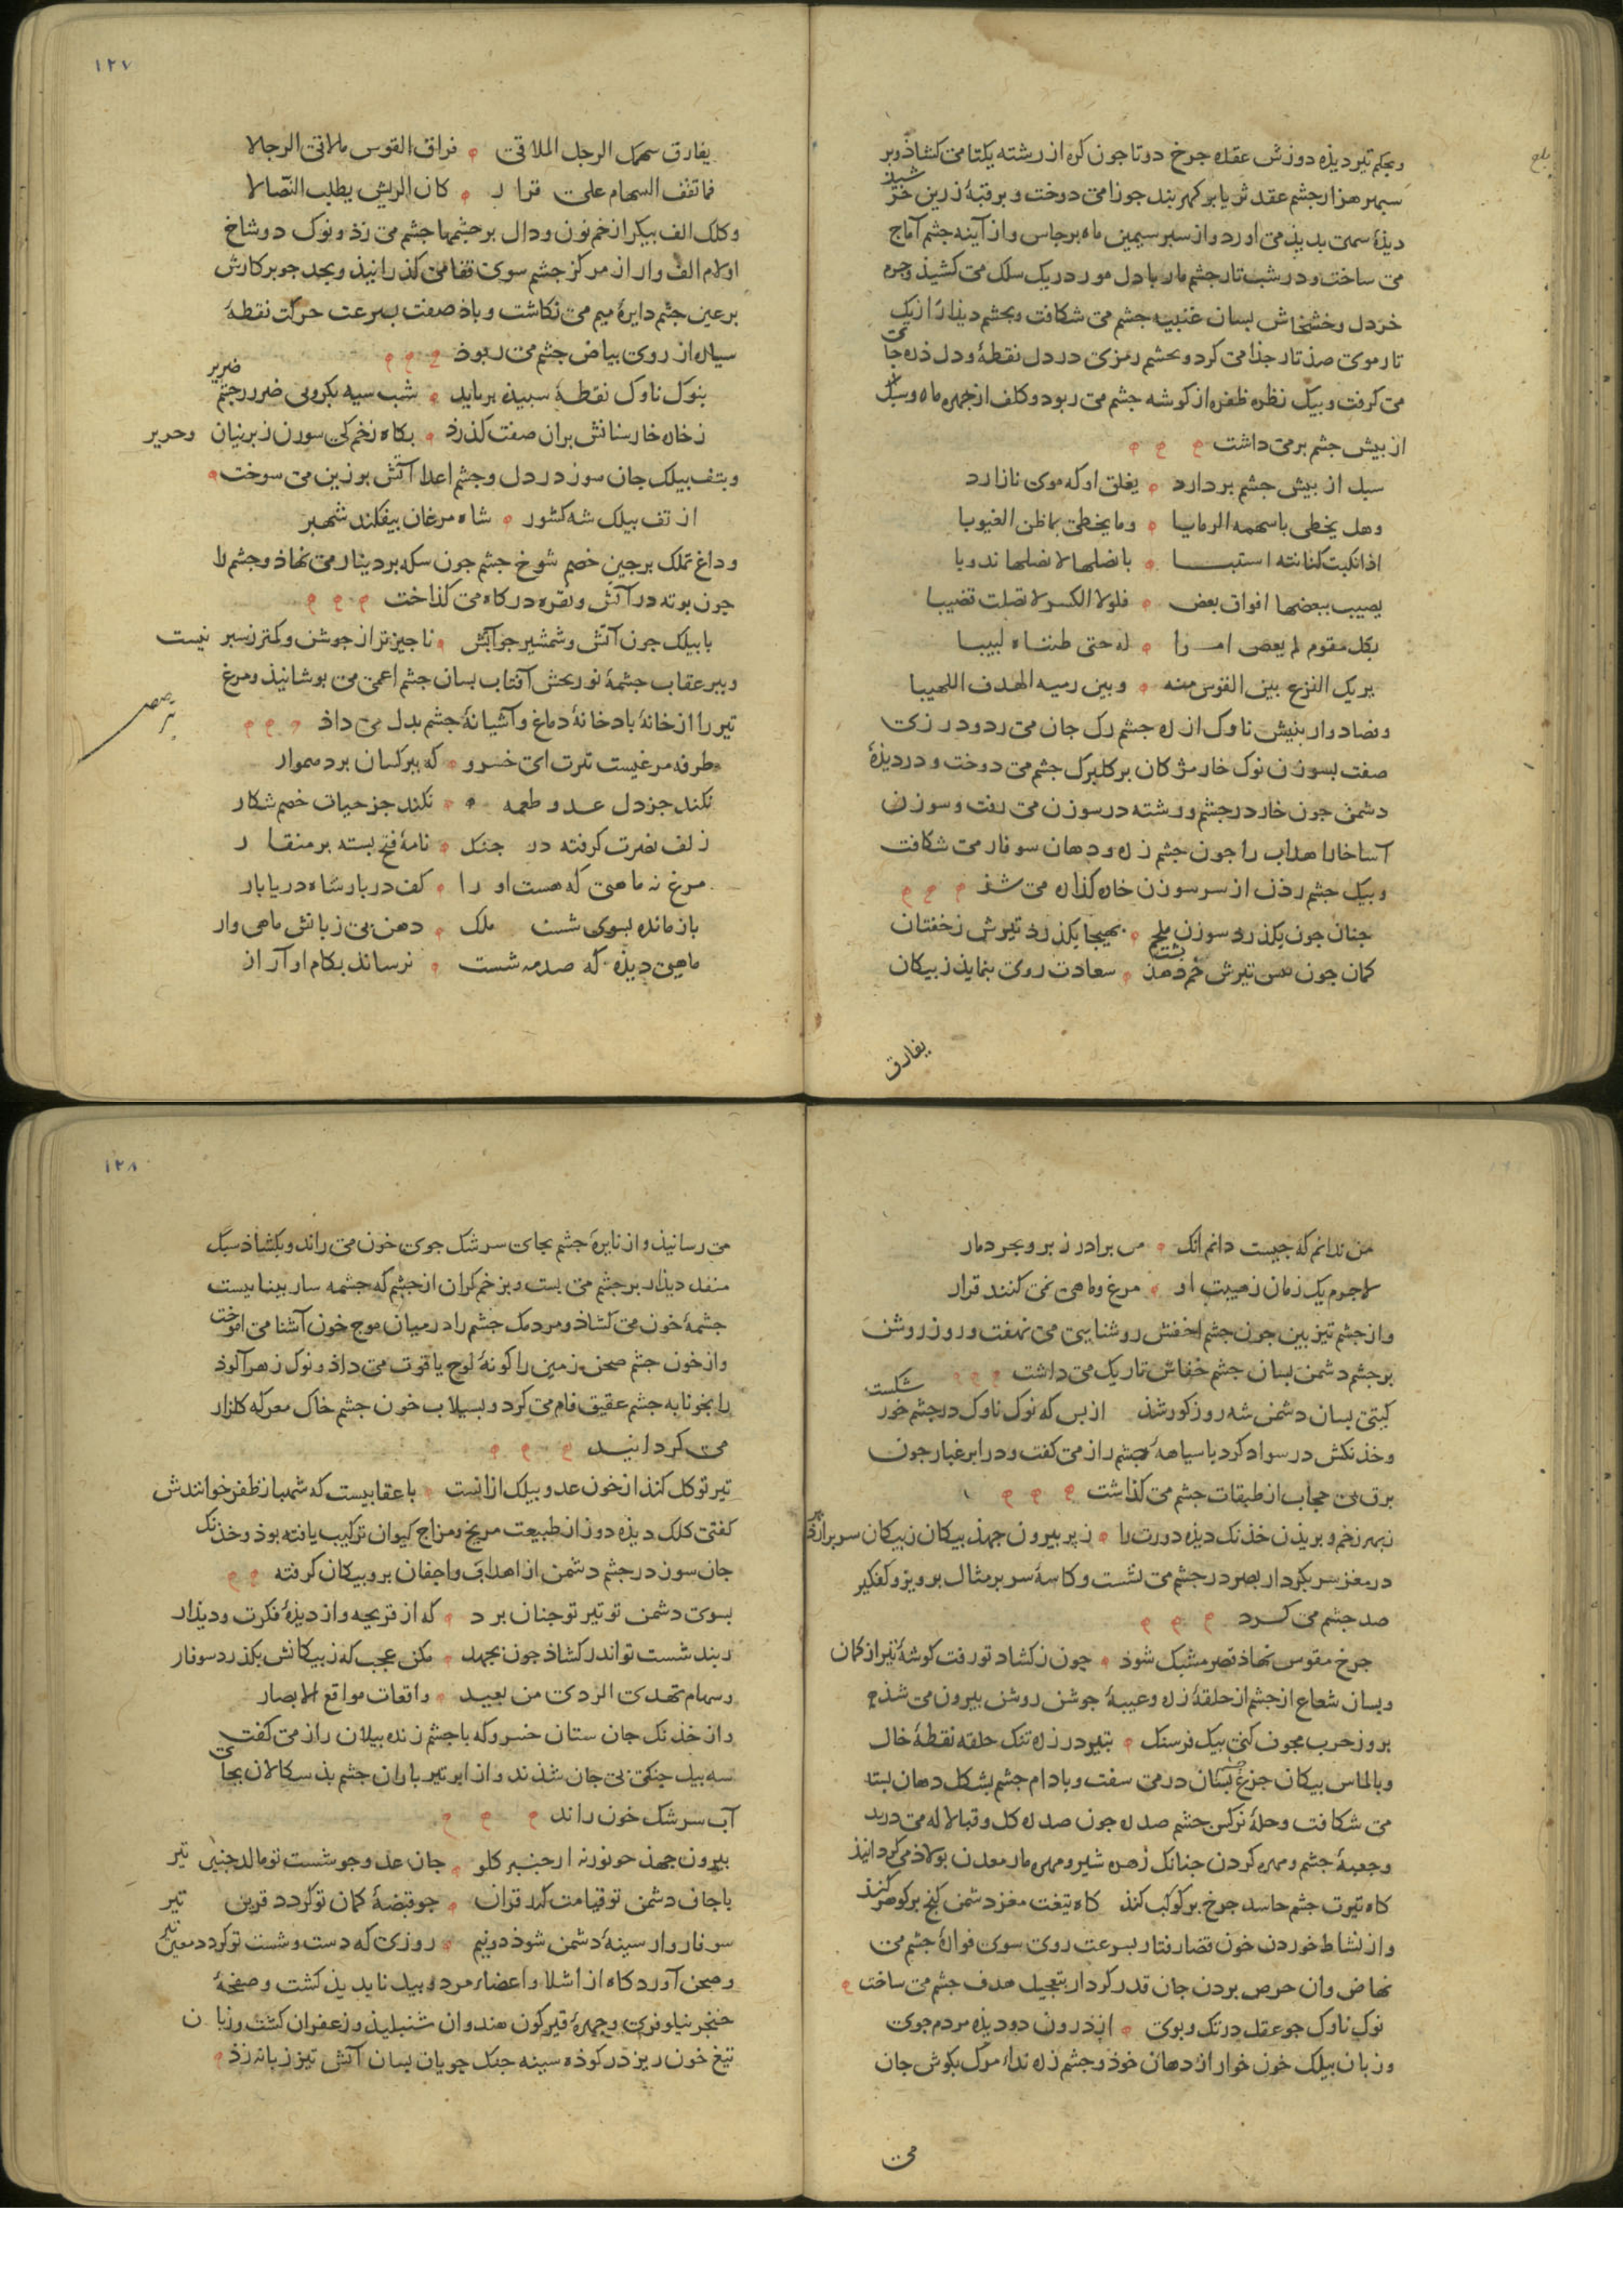 وبحکم تیر دیذه دوزش عقده جرخ دوتا جون کره از رشته یکتا می کشاذ و بر
سبهر هزار جشم عقد ثریا بر کمر بند جوزا می دوخت و بر قبهٔ زرین خر
شیذ
دیذهٔ سمت بدیذ می اورد و از سبر سیمین ماه برجاس و از آینه جشم آماج
می ساخت و در شب تار جشم مار با دل مور در یک سلک می کشیذ وجرم
خردل و خشخاش بسان عنبیه جشم می شکافت و بجشم دیذار از یک
تار موی صذ تار جذا می کرد و بجشم رمزی در دل نقطهٔ و دل ذره جا
می
می کرفت و بیک نظره ظفره از کوشه جشم می ربود و کلف از جهره ماه و سبل
از بیش جشم بر می داشت
سبل از بیش جشم بر دارد یغلق او که موی نازارد
وهل یخطی باسهمه الرمایا وما یخطی بما ظن الغیوبا
اذا نکبت کنانته استبنا بانصلها لانصلها ندوبا
یصیب ببعضها افواق بعض فلولا الکسر لا تصلت قضیبا
بکل مقوم لم یعص امرا له حتی ظنناه لبیبا
یریک النزع بین القوس منه وبین رمیه الهدف اللهیبا
و فصاد وار بنیش ناوک از ره جشم رک جان می زد و درزی
صفت بسوزن نوک خار مژکان بر کلبرک جشم می دوخت و در دیذهٔ
دشمن جون خار در جشم و رشته در سوزن می رفت و سوزن
آسا خارا هداب را جون جشم زره و دهان سوفار می شکافت
و بیک جشم زدن از سر سوزن خاره کذاره می شذ
جنان جون بکذرد سوزن ملحم بهیجا بکذرذ تیرش زخفتان
کمان جون تیرش خم دهذ سعادت روی بنمایذ زبیکان
بشت
یفارق
١٢٧
یفارق سهمک الرجل الملاقی فراق القوس ملاقی الرجالا
فما تقف السهام علی قرار کان الریش یطلب النصالا
و کلک الف بیکر از خم نون و دال بر جشمها جشم می زذ و نوک دو شاخ
او لام الف وار از مرکز جشم سوی قفا می کذرانیذ و بحد جو برکارش
بر عین جشم دایرهٔ میم می نکاشت و باذ صفت بسرعت حرکت نقطهٔ
سیاه از روی بیاض جشم می ربوذ
بنوک ناوک نقطهٔ سبیذ برباید شب سیه بکروبی ضرر رجشم
ضریر
زخاره خار سنانش بران صفت کذرذ بکاه زخم کی سوزن زبرنیان وحریر
و بتف بیلک جان سوز در دل و جشم اعدا آتش بوزین می سوخت
از تف بیلک شه کشور شاه مرغان بیفکند شهبر
و داغ تملک بر جبین خصم شوخ جشم جون سکه بر دینار می نهاذ و جشم را
جون بوته در آتش و نقره در کاه می کذاخت
با بیلک جون آتش و شمشیر جو آبش ناجیزتر از جوشن و کمتر زسبر نیست
و ببر عقاب جشمهٔ نور بخش آفتاب بسان جشم اعمی می بوشانیذ و مرغ
تیر را از خانهٔ باد خانهٔ دماغ و آشیانهٔ جشم بدل می داذ
طرفه مرغیست تیرت ای خسرو که ببر کسان برد هموار
نکند جز دل عدو طعمه نکند جز حیات خصم شکار
زلف نصرت کرفته در جنکل نامهٔ فتح بسته بر منقار
مرغ نه ماهی که هست او را کف دربار شاه دریا بار
باز مانده بسوی شست ملک دهن بی زبانش ماهی وار
ماهیی دیذه که صدمه شست نرساند بکام او آزار
من ندانم که جیست دانم انک می برادر زبر و بحر دمار
لاجرم یک زمان زهیبت او مرغ و ماهی نمی کنند قرار
و از جشم تیز بین جون جشم اخفش روشنایی می نهفت و روز روشن
بر جشم دشمن بسان جشم خفاش تاریک می داشت
کیتی بسان دشمن شه روز کور شذ از بس که نوک ناوک در جشم خور
شکست
و خذنکش در سواد کرد با سیاهه جشم راز می کفت و در ابر غبار جون
برق بی حجاب از طبقات جشم می کذاشت
زبهر زخم و بریذن خذنک دیذه دورت را زپر بیرون جهذ بیکان زبیکان سر برارد
در مغز سر بکردار بصر در جشم می نشست و کاسهٔ سر بر مثال برویز و کفکیر
صد جشم می کرد
جرخ مقوس نهاذ قصر مشبک شوذ چون ز کشاد تو رفت کوشهٔ تیر از کمان
و بسان شعاع از جشم از حلقهٔ زره و عیبهٔ جوشن روشن بیرون می شذ
بروز حرب مجون کنی بیک فرسنک بتیر در زره تنک حلقه نقطهٔ خال
و بالماس بیکان جزع بسان در می سفت و باذام جشم بشکل دهان بسته
می شکافت و حلهٔ نرکس جشم صدره جون صدره کل و قبا لاله می درید
و جعبهٔ جشم و مهره کردن جنانک زهره شیر و مهره مار معدن بولاذ می کردانیذ
کاه تیرت جشم حاسد جرخ بر کوکب کنذ کاه تیغت مغز دشمن کنج بر کوهر
کنذ
و از نشاط خوردن خون قضا رفتار بسرعت روی سوی فوارهٔ جشم می
نهاذ و ان حرص بردن جان قدر کردار بتعجیل هدف جشم می ساخت
نوک ناوک جو عقل در تک و بوی از درون دو دیذه مردم جوی
و زبان بیلک خون خوار از دهان خوذ و جشم زره نداء مرک بکوش جان
می
١٢٨
می رسانیذ و از نایرهٔ جشم بجای سرشک جوی خون می راند و بکشاذ سبک
منفذ دیذار بر جشم می بست و بزخم کران از جشم که جشمه سار بیناییست
جشمهٔ خون می کشاذ و مردمک جشم را در میان موج خون آشنا می اموخت
و از خون جشم صحن زمین را کونهٔ لوح یاقوت می داذ و نوک زهر آلوذ
را بخونابه جشم عقیق فام می کرد و بسیلاب خون جشم خاک معرکه کلزار
می کردانید
تیر تو کل کنذ از خون عدو بیلک ازانست با عقابیست که شهباز ظفر خوانندش
کفتی کلک دیذه دوز از طبیعت مریخ و مزاج کیوان ترکیب یافته بوذ و خذنک
جان سوز در جشم دشمن از اهداب و اجفان بر و بیکان کرفته
بسوی دشمن تو تیر تو جنان برد که از قریحه و از دیذهٔ فکرت و دیذار
ز بند شست تو اندر کشاذ جون بجهد مکن عجب که زبیکانش بکذرد سوفار
وسهام تهدی الردی من بعید واقعات مواقع الابصار
و از خذنک جان ستان خسرو که با جشم زنده بیلان راز می کفت
سه بیل جنکی بی جان شذند و از ابر تیر باران جشم بذ سکالان بجا
ی
آب سرشک خون راند
بیرون جهذ کلو جان عدو جو شست تو مالد جنین تیر
با جان دشمن تو قیامت کند قران جو قبضهٔ کمان تو کردد قرین تیر
سوفار وار سینهٔ دشمن شوذ دو نیم روزی که دست و شست تو کردد معین
تیر
و صحن آوردکاه از اشلا و اعضاء مرد و بیل نابدیذ کشت و صفحهٔ
خنجر نیلوفری و جهرهٔ قیرکون هندوان شنبلیذ و زعفران کشت و زبان
تیغ خون ریز در کوذه سینه جنک جویان بسان آتش تیز زبانه زذ